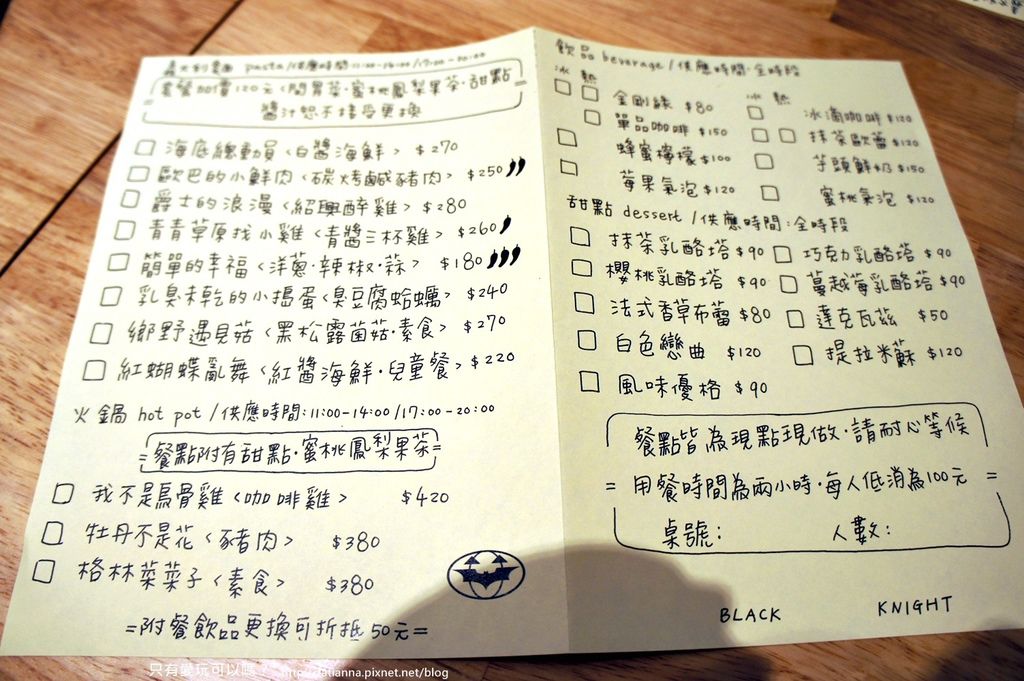 義大利麵 pasta/供應時間:11:00-14:00/17:00-20:00
套餐加價120元<開胃菜·蜜桃鳳梨果茶·甜點>
醬汁恕不接受更換
海底總動員<白醬海鮮> $270
歐巴的小鮮肉<碳烤鹹豬肉> $250
爵士的浪漫<紹興醉雞> $280
青青草原找小雞<青醬三杯雞> $260
簡單的幸福<洋蔥·辣椒·蒜> $180
乳臭未乾的小搗蛋<臭豆腐蛤蠣> $240
鄉野遇見菇<黑松露菌菇·素食> $270
紅蝴蝶亂舞<紅醬海鮮·兒童餐> $220
火鍋 hot pot/供應時間:11:00-14:00/17:00-20:00
=餐點附有甜點·蜜桃鳳梨果茶=
我不是烏骨雞<咖啡雞> $420
牡丹不是花<豬肉> $380
格林菜菜子<素食> $380
=附餐飲品更換可折抵50元=
飲品 beverage/供應時間·全時段
冰 熱
金剛綠 $80
單品咖啡 $150
蜂蜜檸檬 $100
莓果氣泡 $120
冰 熱
冰滴咖啡 $120
抹茶歐蕾 $120
芋頭鮮奶 $150
蜜桃氣泡 $120
甜點 dessert/供應時間:全時段
抹茶乳酪塔 $90 巧克力乳酪塔 $90
櫻桃乳酪塔 $90 蔓越莓乳酪塔 $90
法式香草布蕾 $80 達克瓦茲 $50
白色戀曲 $120 提拉米蘇 $120
風味優格 $90
餐點皆為現點現做·請耐心等候
=用餐時間為兩小時·每人低消為100元=
桌號: 人數:
BLACK KNIGHT
只有愛玩可以嗎? http://tatianna.pixnet.net/blog